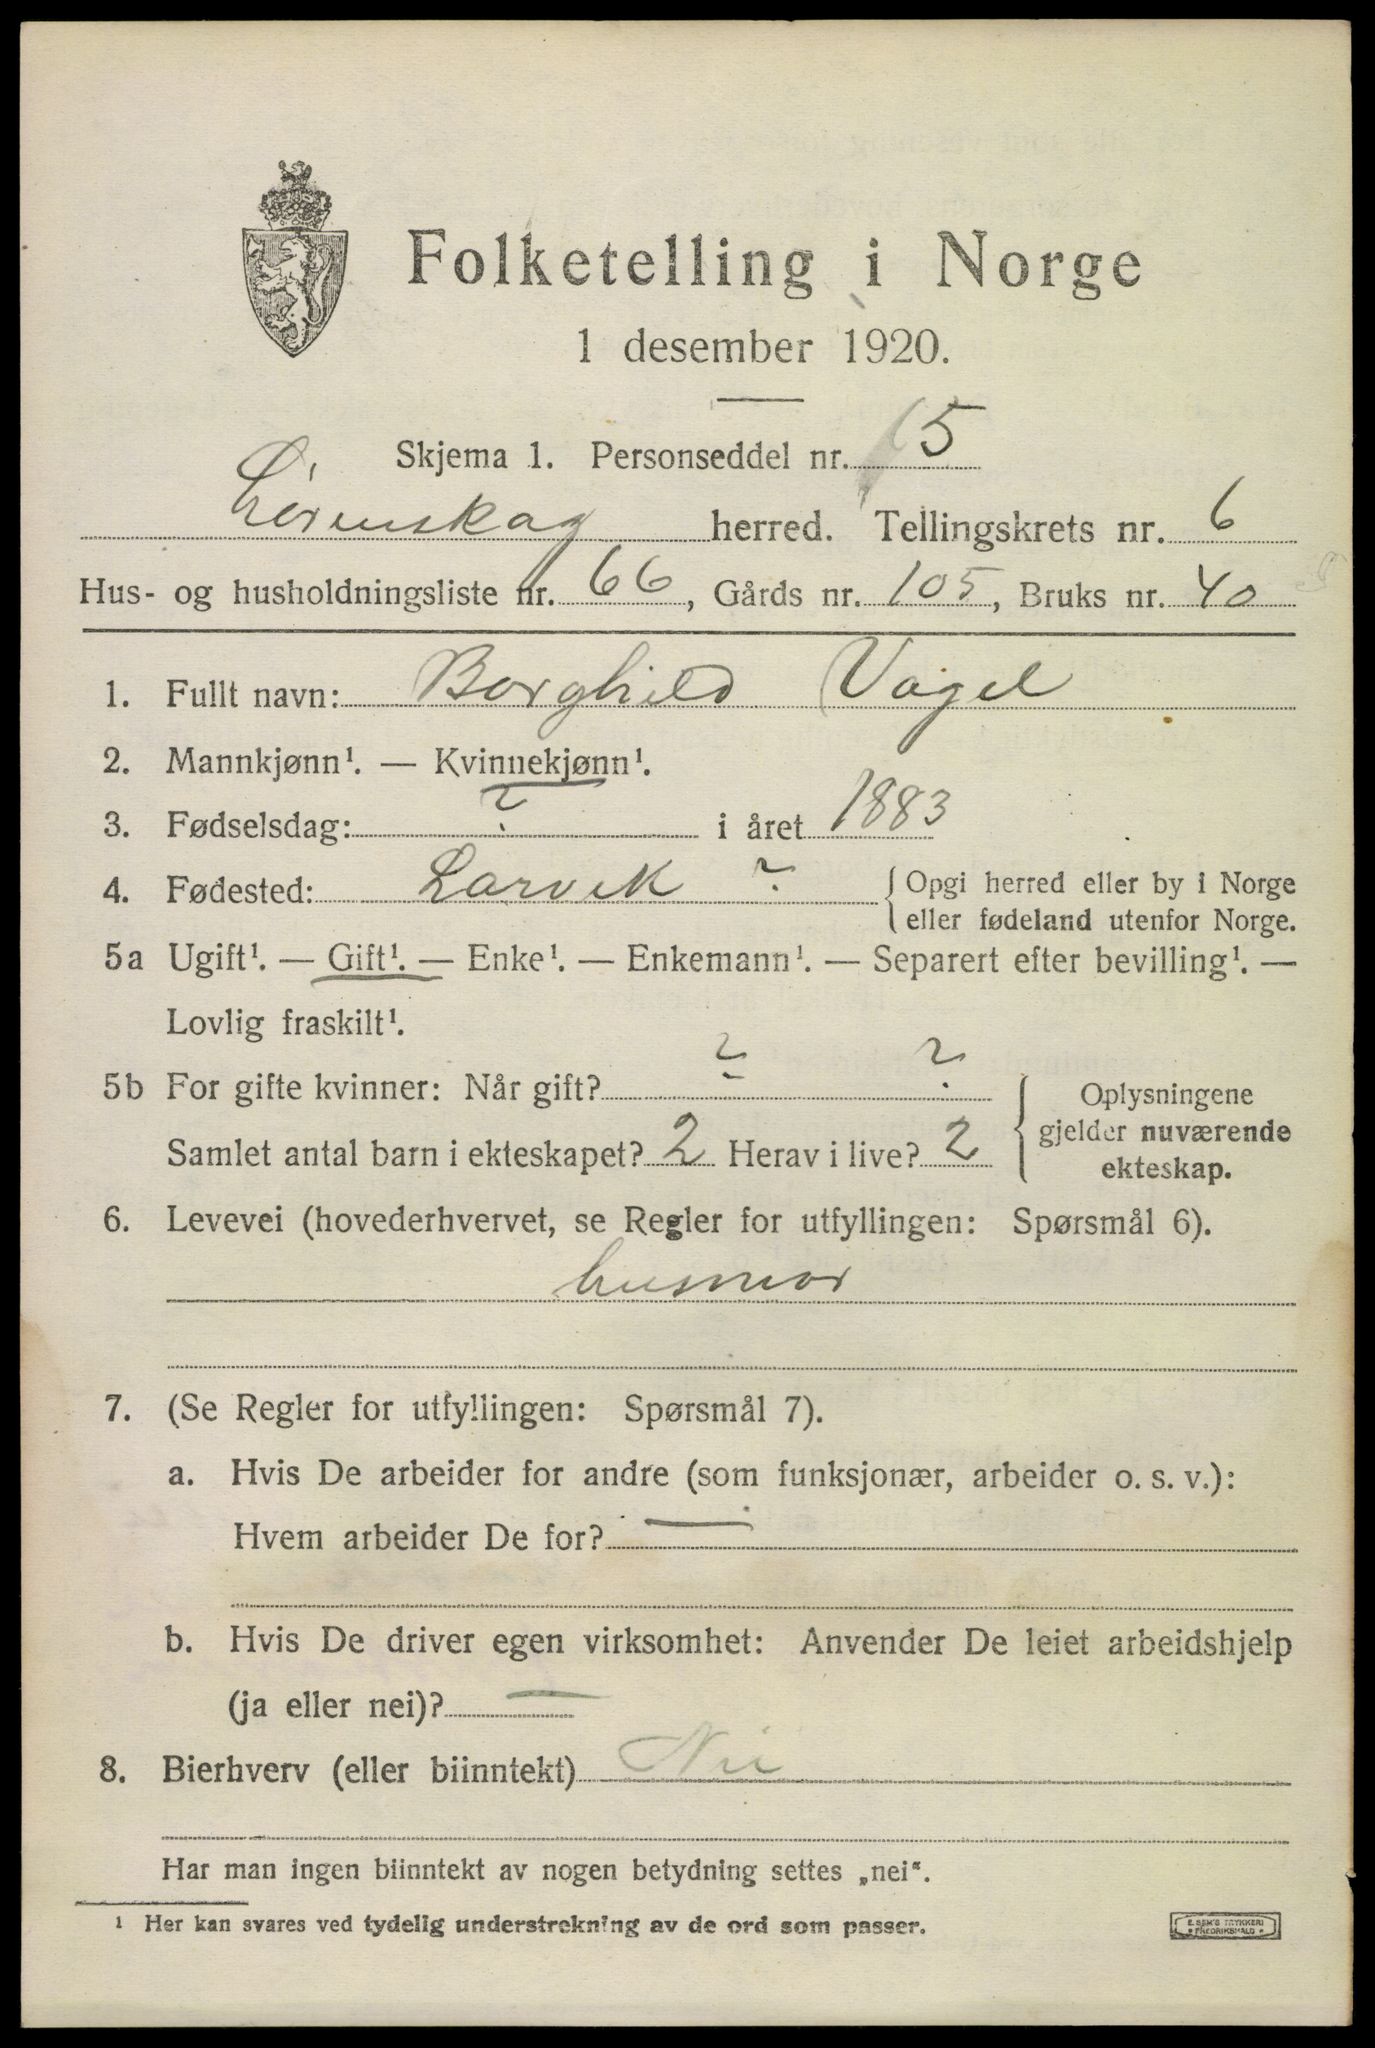 Folketelling i Norge
1 desember 1920.
Skjema 1. Personseddel nr. 5
Lørenskog herred. Tellingskrets nr. 6
Hus- og husholdningsliste nr. 66, Gårds nr. 105, Bruks nr. 40
1. Fullt navn: Borghild Vagel
2. Mannkjønn¹. — Kvinnekjønn¹.
3. Fødselsdag: ? i året 1883
4. Fødested: Larvik ? { Opgi herred eller by i Norge
eller fødeland utenfor Norge.
5a Ugift¹. — Gift¹. — Enke¹. — Enkemann¹. — Separert efter bevilling¹. —
Lovlig fraskilt¹.
5b For gifte kvinner: Når gift? ? ?
Samlet antal barn i ekteskapet? 2 Herav i live? 2
{ Oplysningene
gjelder nuværende
ekteskap.
6. Levevei (hovederhvervet, se Regler for utfyllingen: Spørsmål 6).
husmor
7. (Se Regler for utfyllingen: Spørsmål 7).
a. Hvis De arbeider for andre (som funksjonær, arbeider o. s. v.):
Hvem arbeider De for? —
b. Hvis De driver egen virksomhet: Anvender De leiet arbeidshjelp
(ja eller nei)? —
8. Bierhverv (eller biinntekt) Nei
Har man ingen biinntekt av nogen betydning settes „nei“.
¹ Her kan svares ved tydelig understrekning av de ord som passer.
E. SEM'S TRYKKERI
FREDRIKSHALD